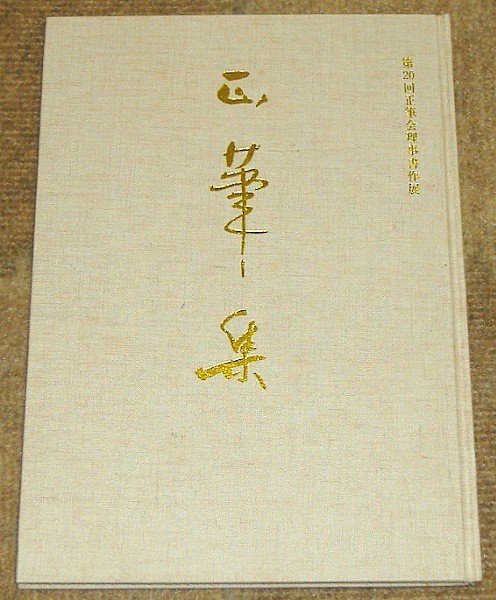 第20回正筆会理事書作展
正筆集